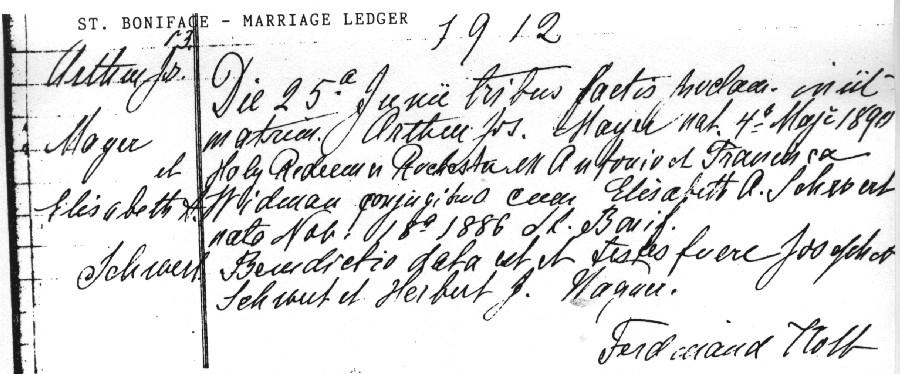 ST. BONIFACE - MARRIAGE LEDGER
1912
53.
Arthur Js.
Mayer
et
Elisabeth A.
Schwert
Die 25ª Junii tribus factis proclam. iniit
matrim. Arthur Jos. Mayer nat. 4ª Maji 1890
Holy Redeemer Rochester ex Antonio et Francisca
Weidman conjugibus cum Elisabeth A. Schwert
nata Nob. 18ª 1886 St. Bonif.
Benedictio data est et testes fuere Joseph et
Schwert et Herbert J. Wagner.
Ferdinand Kolb